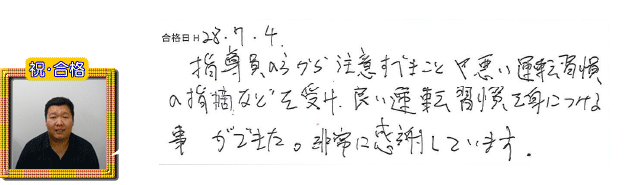 祝・合格
合格日H 28.7.4.
指導員の方から注意すべきことや悪い運転習慣
の指摘などを受け、良い運転習慣を身につける
事ができた。非常に感謝しています.